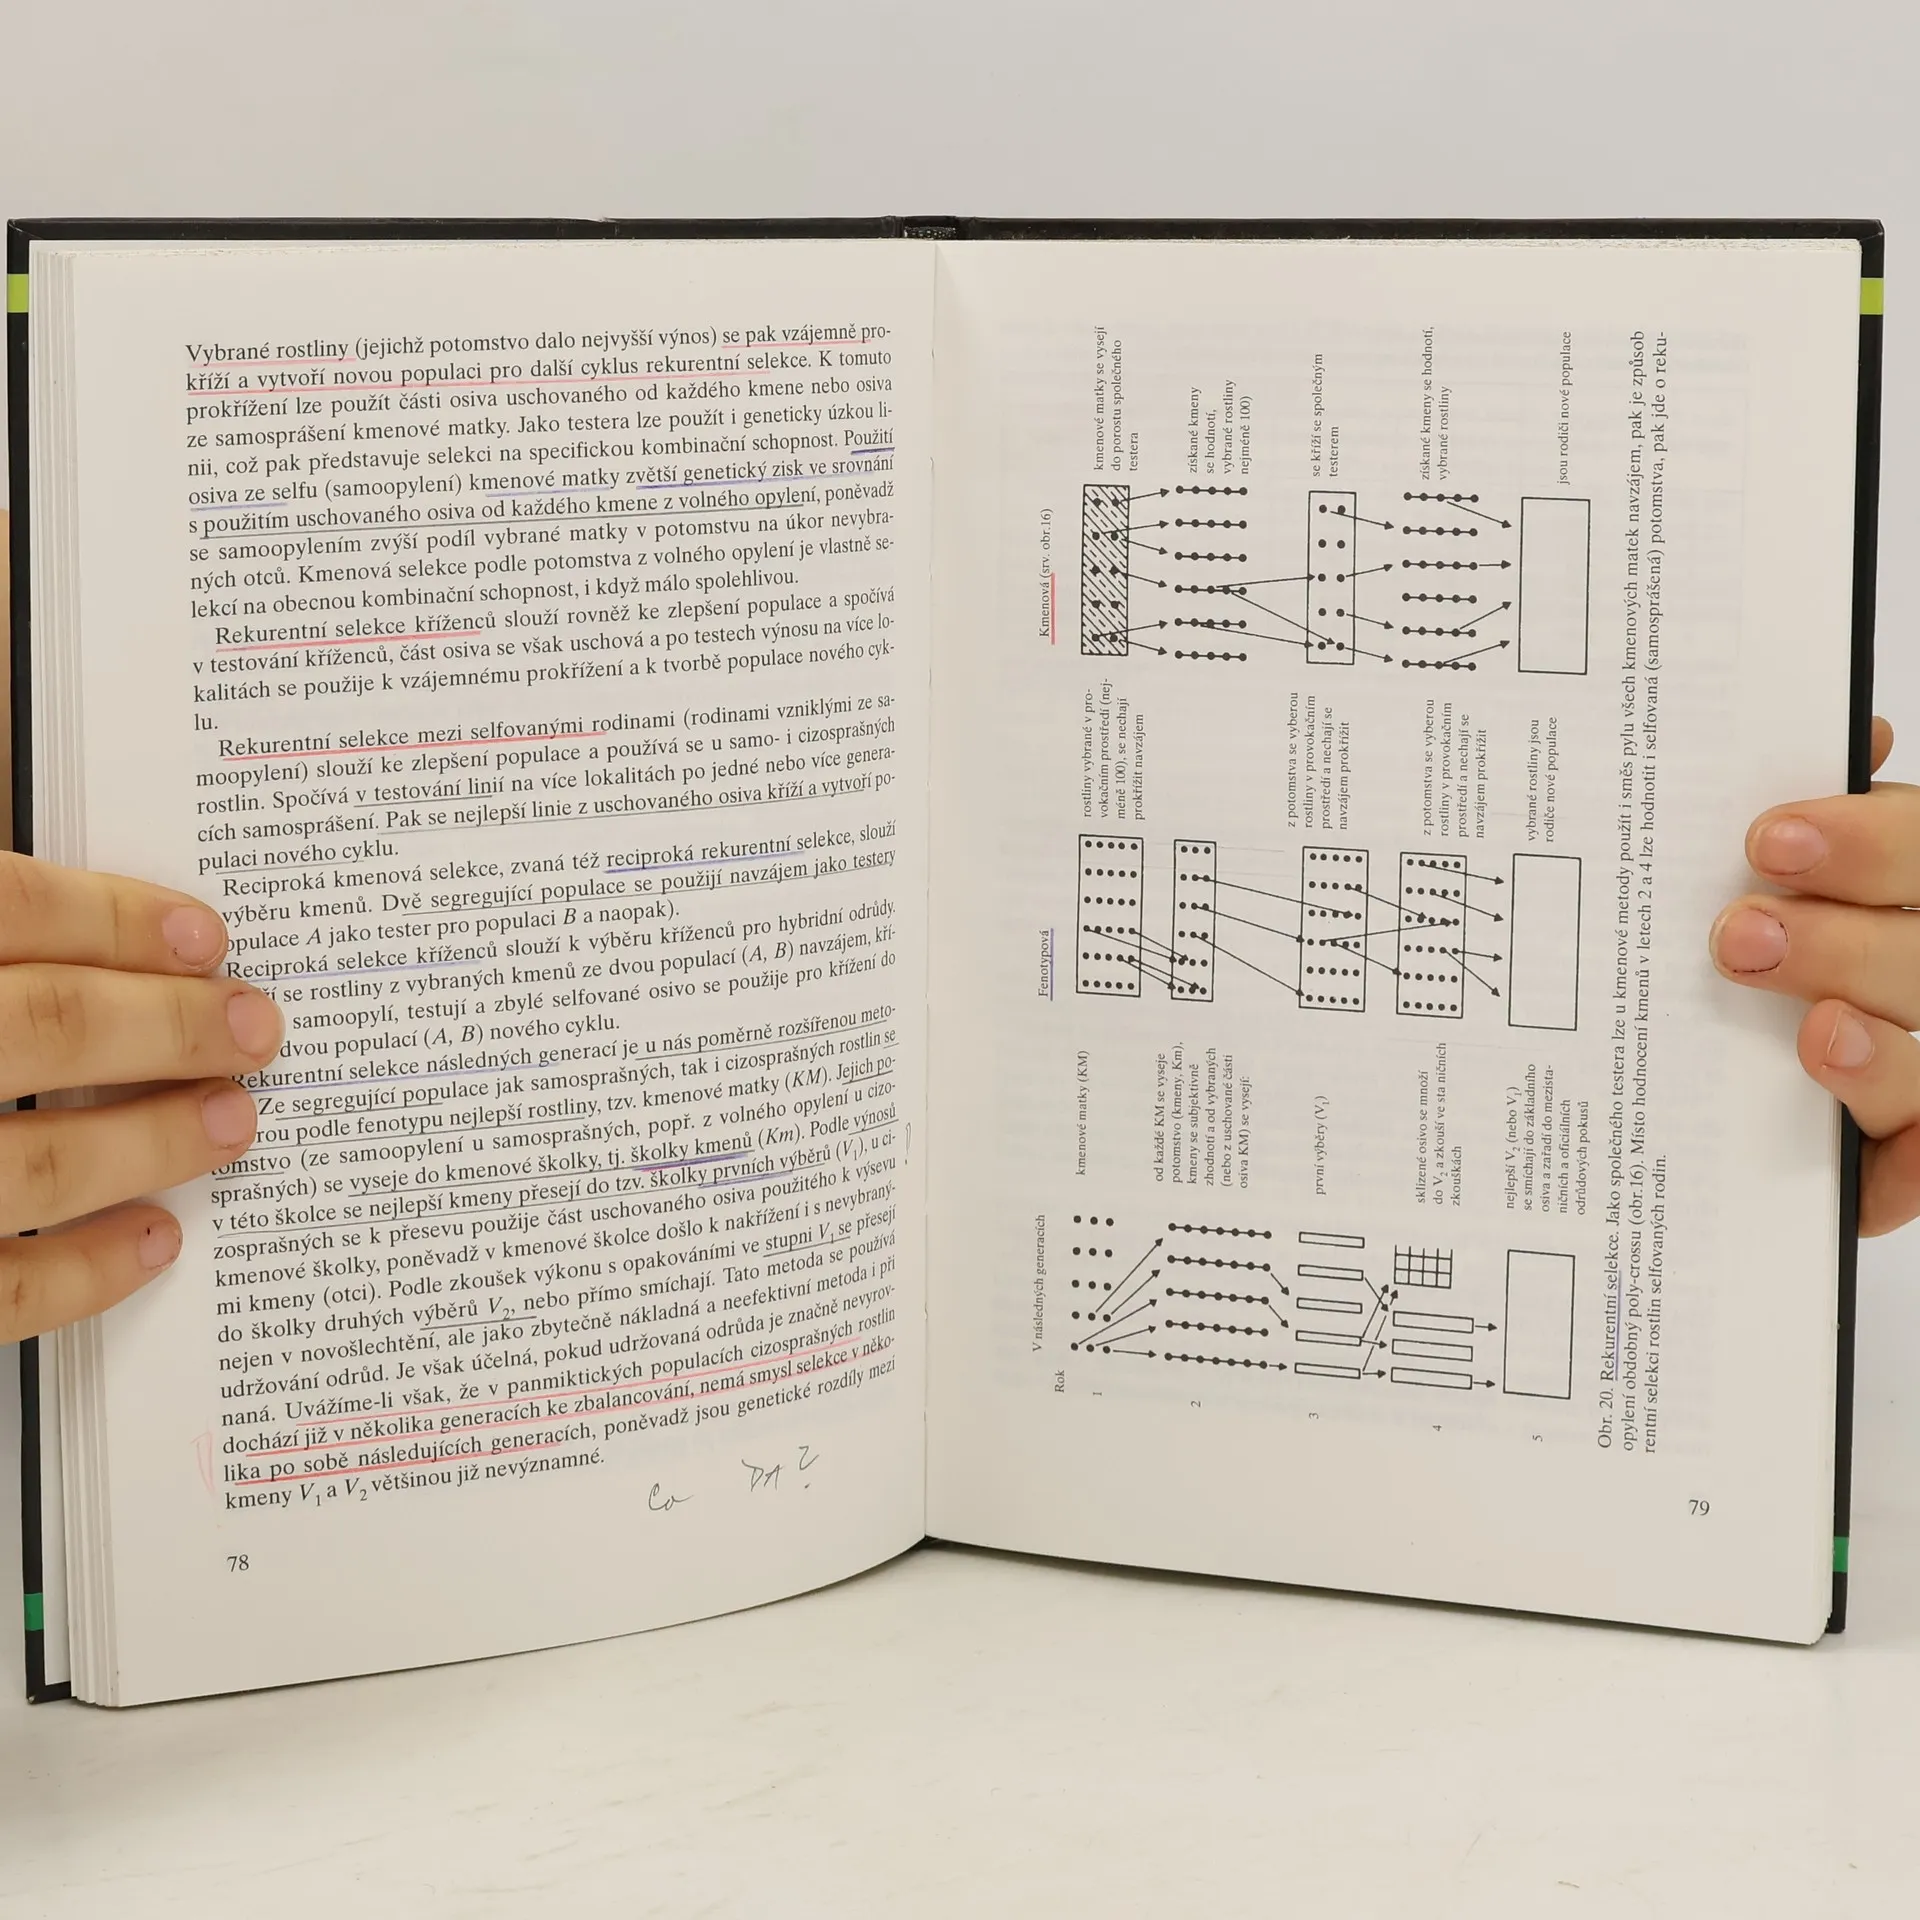 Vybrané rostliny (jejichž potomstvo dalo nejvyšší výnos) se pak vzájemně pro-
kříží a vytvoří novou populaci pro další cyklus rekurentní selekce. K tomuto
prokřížení lze použít části osiva uschovaného od každého kmene nebo osiva
ze samosprášení kmenové matky. Jako testera lze použít i geneticky úzkou li-
nii, což pak představuje selekci na specifickou kombinační schopnost. Použití
osiva ze selfu (samoopylení) kmenové matky zvětší genetický zisk ve srovnání
s použitím uschovaného osiva od každého kmene z volného opylení, poněvadž
se samoopylením zvýší podíl vybrané matky v potomstvu na úkor nevybra-
ných otců. Kmenová selekce podle potomstva z volného opylení je vlastně se-
lekcí na obecnou kombinační schopnost, i když málo spolehlivou.
Rekurentní selekce kříženců slouží rovněž ke zlepšení populace a spočívá
v testování kříženců, část osiva se však uschová a po testech výnosu na více lo-
kalitách se použije k vzájemnému prokřížení a k tvorbě populace nového cyk-
lu.
Rekurentní selekce mezi selfovanými rodinami (rodinami vzniklými ze sa-
moopylení) slouží ke zlepšení populace a používá se u samo- i cizosprašných
rostlin. Spočívá v testování linií na více lokalitách po jedné nebo více genera-
cích samosprášení. Pak se nejlepší linie z uschovaného osiva kříží a vytvoří po-
pulaci nového cyklu.
Reciproká kmenová selekce, zvaná též reciproká rekurentní selekce, slouží
výběru kmenů. Dvě segregující populace se použijí navzájem jako testery
opulace A jako tester pro populaci B a naopak).
Reciproká selekce kříženců slouží k výběru kříženců pro hybridní odrůdy.
í se rostliny z vybraných kmenů ze dvou populací (A, B) navzájem, kří-
samoopylí, testují a zbylé selfované osivo se použije pro křížení do
dvou populací (A, B) nového cyklu.
Rekurentní selekce následných generací je u nás poměrně rozšířenou meto-
Ze segregující populace jak samosprašných, tak i cizosprašných rostlin se
rou podle fenotypu nejlepší rostliny, tzv. kmenové matky (KM). Jejich po-
tomstvo (ze samoopylení u samosprašných, popř. z volného opylení u cizo-
sprašných) se vyseje do kmenové školky, tj. školky kmenů (Km). Podle výnosů
v této školce se nejlepší kmeny přesejí do tzv. školky prvních výběrů (V1), u ci-
zosprašných se k přesevu použije část uschovaného osiva použitého k výsevu
kmenové školky, poněvadž v kmenové školce došlo k nakřížení i s nevybraný-
mi kmeny (otci). Podle zkoušek výkonu s opakováními ve stupni V1 se přesejí
do školky druhých výběrů V2, nebo přímo smíchají. Tato metoda se používá
nejen v novošlechtění, ale jako zbytečně nákladná a neefektivní metoda i při
udržování odrůd. Je však účelná, pokud udržovaná odrůda je značně nevyrov-
naná. Uvážíme-li však, že v panmiktických populacích cizosprašných rostlin
dochází již v několika generacích ke zbalancování, nemá smysl selekce v něko-
lika po sobě následujících generacích, poněvadž jsou genetické rozdíly mezi
kmeny V1 a V2 většinou již nevýznamné.
Co DA?
78
Rok
1
2
3
4
5
V následných generacích
kmenové matky (KM)
od každé KM se vyseje
potomstvo (kmeny, Km),
kmeny se subjektivně
zhodnotí a od vybraných
(nebo z uschované části
osiva KM) se vysejí:
první výběry (V1)
sklizené osivo se množí
do V2 a zkouší ve sta ničních
zkouškách
nejlepší V2 (nebo V1)
se smíchají do základního
osiva a zařadí do mezista-
ničních a oficiálních
odrůdových pokusů
Fenotypová
rostliny vybrané v pro-
vokačním prostředí (nej-
méně 100), se nechají
prokřížit navzájem
z potomstva se vyberou
rostliny v provokačním
prostředí a nechají se
navzájem prokřížit
z potomstva se vyberou
rostliny v provokačním
prostředí a nechají se
navzájem prokřížit
vybrané rostliny jsou
rodiče nové populace
Kmenová (srv. obr.16)
kmenové matky se vysejí
do porostu společného
testera
získané kmeny
se hodnotí,
vybrané rostliny
nejméně 100)
se kříží se společným
testerem
získané kmeny se hodnotí,
vybrané rostliny
jsou rodiči nové populace
Obr. 20. Rekurentní selekce. Jako společného testera lze u kmenové metody použít i směs pylu všech kmenových matek navzájem, pak je způsob
opylení obdobný poly-crossu (obr.16). Místo hodnocení kmenů v letech 2 a 4 lze hodnotit i selfovaná (samosprášená) potomstva, pak jde o reku-
rentní selekci rostlin selfovaných rodin.
79